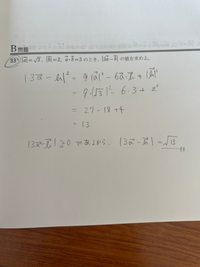 B 問題
33 |a⃗|=√3, |b⃗|=2, a⃗・b⃗=3 のとき, |3a⃗-b⃗| の値を求めよ。
|3a⃗-b⃗|² = 9|a⃗|² - 6a⃗・b⃗ + |b⃗|²
= 9・(√3)² - 6・3 + 2²
= 27 - 18 + 4
= 13
|3a⃗-b⃗| ≧ 0 であるから、 |3a⃗-b⃗| = √13